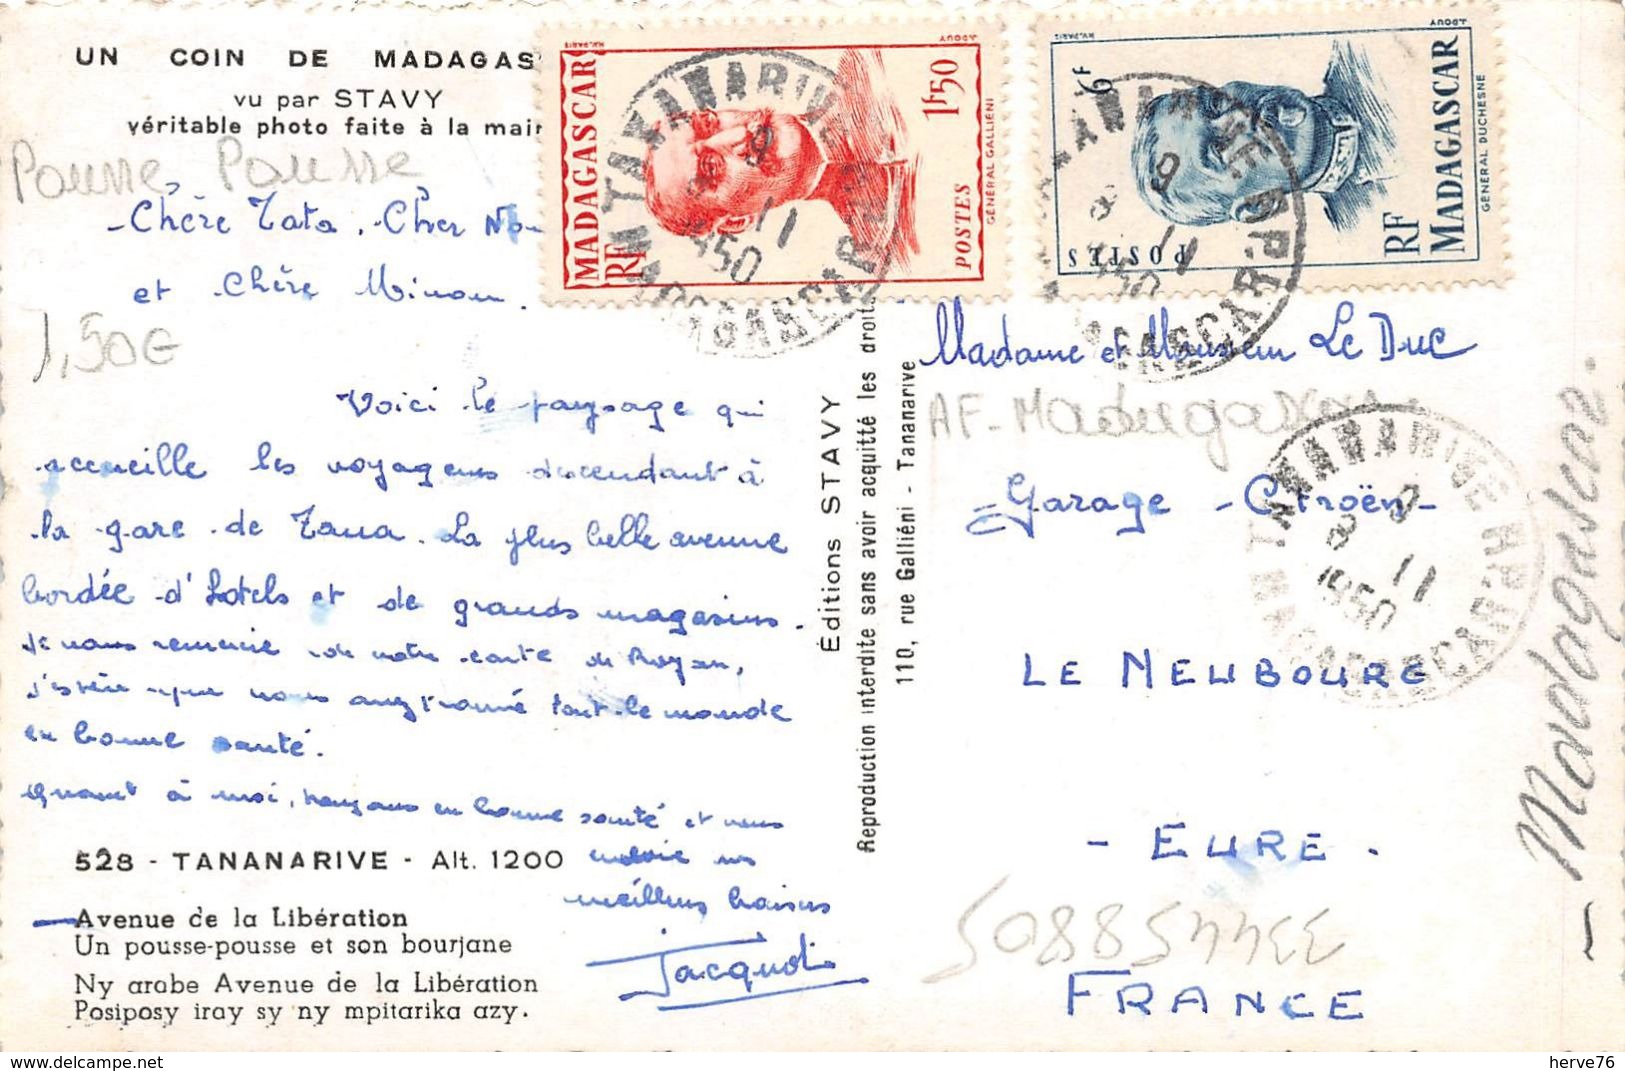 UN COIN DE MADAGAS
vu par STAVY
véritable photo faite à la mair
Pousse Pousse
Chère Tata, Cher
et Chère Minou.
1,50€
Voici le paysage qui
accueille les voyageurs descendant à
la gare de Tana. La plus belle avenue
bordée d'hotels et de grands magasins.
Je vous remercie de votre carte de Royan,
j'espère que vous avez trouvé tout le monde
en bonne santé.
Quant à moi, toujours en bonne santé et vous
envoie mes
meilleurs baisers
Jacquot
528 - TANANARIVE - Alt. 1200
Avenue de la Libération
Un pousse-pousse et son bourjane
Ny arabe Avenue de la Libération
Posiposy iray sy ny mpitarika azy.
Éditions STAVY
Reproduction interdite sans avoir acquitté les droits
110, rue Galliéni - Tananarive
MADAGASCAR
RF
1F50
POSTES
GÉNÉRAL GALLIÉNI
J.DOUY
HV.PARIS
TANANARIVE R.P.
9-11
1950
MADAGASCAR
6F
MADAGASCAR
RF
POSTES
GÉNÉRAL DUCHESNE
J.DOUY
HV.PARIS
TANANARIVE R.P.
9-11
1950
MADAGASCAR
Madame et Monsieur Le Duc
AF-Madagascar
Garage Citroën
TANANARIVE R.P.
9-11
1950
MADAGASCAR
LE NEUBOURG
- EURE.
FRANCE
Madagascar.
hervé76